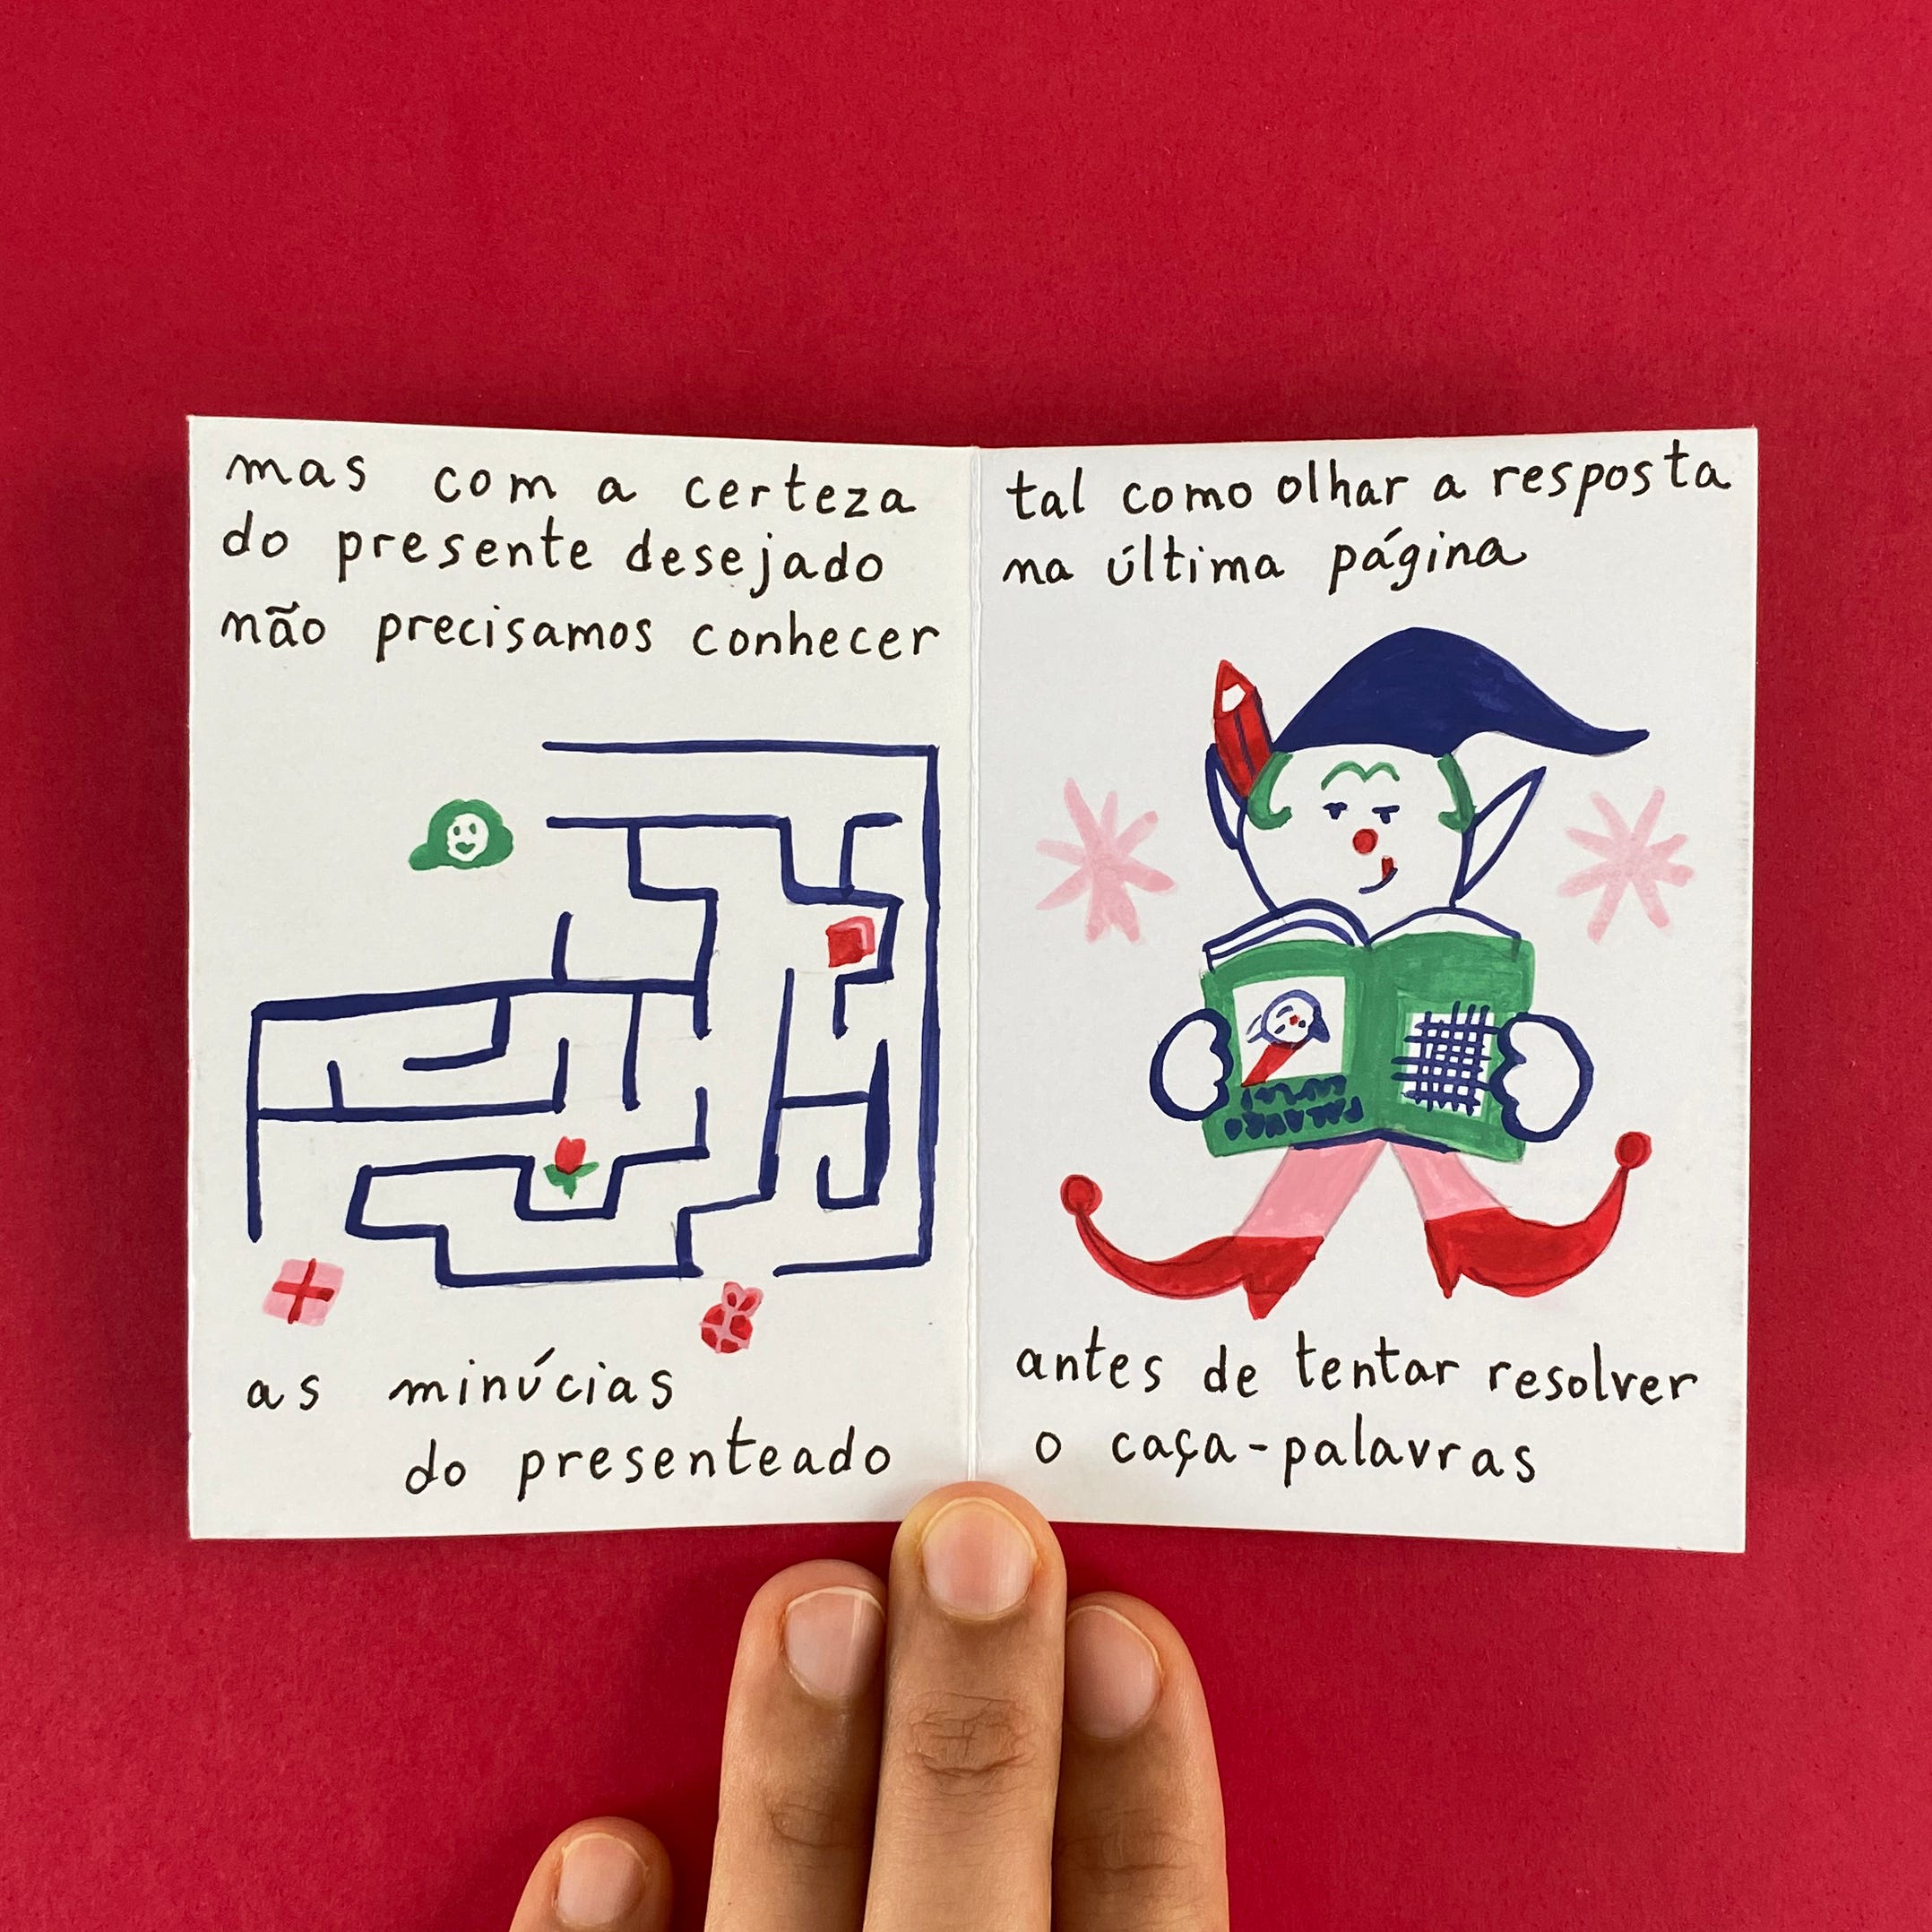 mas com a certeza
do presente desejado
não precisamos conhecer
as minúcias
do presenteado
tal como olhar a resposta
na última página
antes de tentar resolver
o caça-palavras